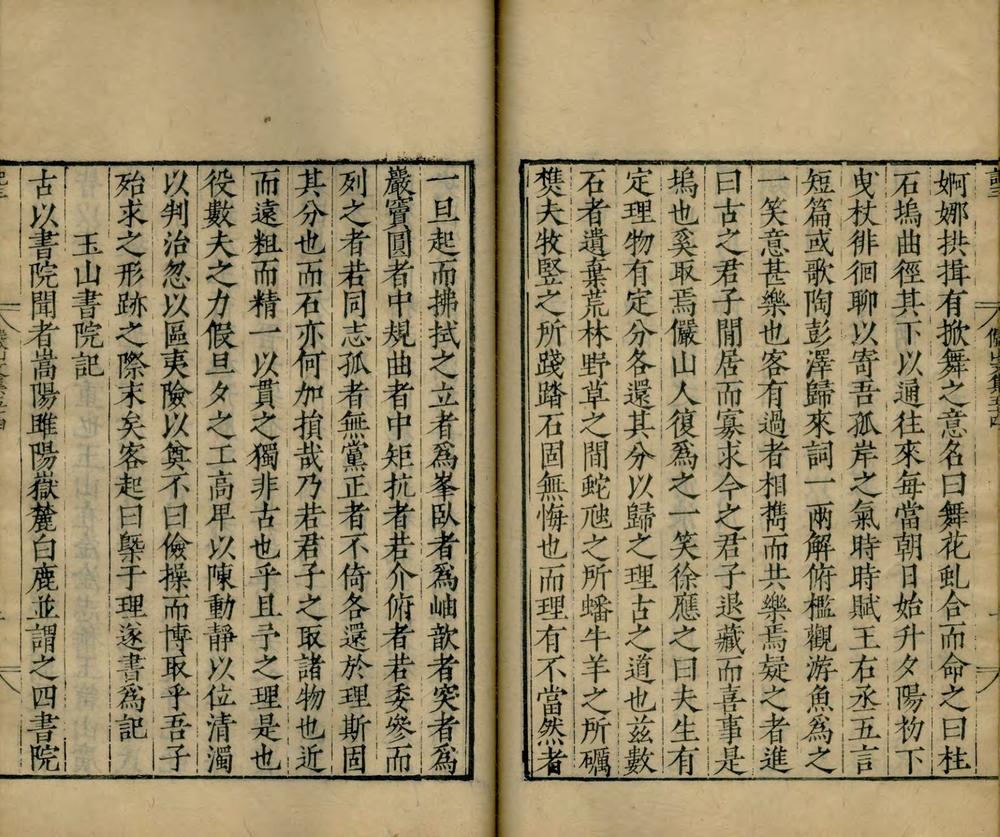 婀娜拱揖有掀舞之意名曰舞花虬合而命之曰桂
石塢曲徑其下以通往來每當朝日始升夕陽初下
曳杖徘徊聊以寄吾孤岸之氣時時賦王右丞五言
短篇或歌陶彭澤歸來詞一兩解俯檻觀游魚爲之
一笑意甚樂也客有過者相擕而共樂焉疑之者進
曰古之君子閒居而寡求今之君子退藏而喜事是
塢也奚取焉儼山人復爲之一笑徐應之曰夫生有
定理物有定分各還其分以歸之理古之道也兹數
石者遺棄荒林野草之間蛇虺之所蟠牛羊之所礪
樵夫牧豎之所踐踏石固無悔也而理有不當然者
一旦起而拂拭之立者爲峯臥者爲岫歆者突者爲
巖竇圓者中規曲者中矩抗者若介俯者若委參而
列之者若同志孤者無黨正者不倚各還於理斯固
其分也而石亦何加損哉乃若君子之取諸物也近
而遠粗而精一以貫之獨非古也乎且予之理是也
役數夫之力假旦夕之工高卑以陳動靜以位清濁
以判治忽以區夷險以奠不曰儉操而博取乎吾子
殆求之形跡之際末矣客起曰槩于理遂書爲記
玉山書院記
古以書院聞者嵩陽睢陽嶽麓白鹿並謂之四書院